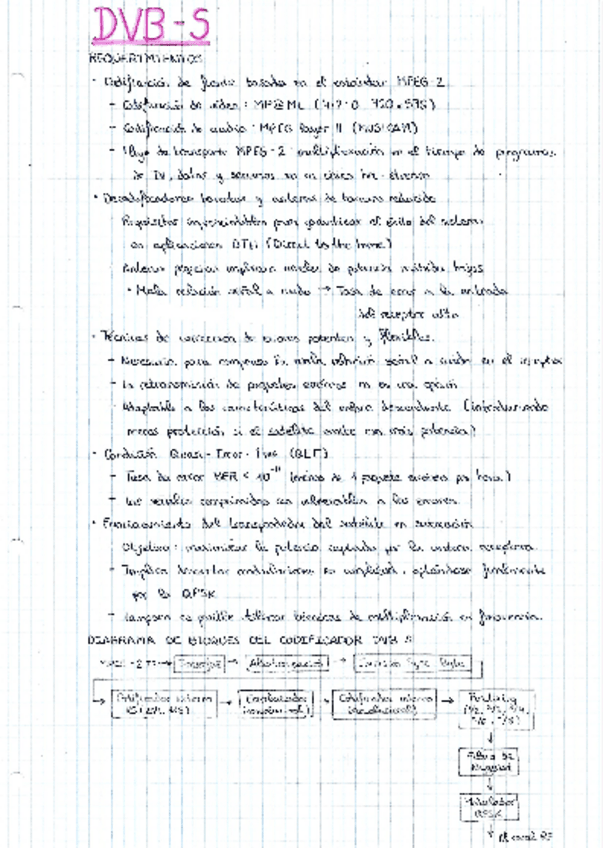 DVB-S
REQUERIMIENTOS
· Codificación de fuente basada en el estándar MPEG-2
– Codificación de vídeo: MP@ML (4:2:0, 720x576)
– Codificación de audio: MPEG Layer II (MUSICAM)
– Flujo de transporte MPEG-2: multiplexación en el tiempo de programas
de TV, datos y servicios en un único
· Decodificadores baratos y antenas de tamaño reducido
Requisitos imprescindibles para garantizar el éxito del sistema
en aplicaciones DTH (Direct to the home)
Antenas pequeñas implican niveles de potencia recibida bajos
· Mala relación señal a ruido → Tasa de error a la entrada
del receptor alta
· Técnicas de corrección de errores potentes y flexibles.
– Necesario para compensar la mala relación señal a ruido en el receptor
– La retransmisión de paquetes erróneos no es una opción
– Adaptable a las características del enlace descendente (introduciendo
menos protección si el satélite emite con más potencia)
· Condición Quasi-Error-Free (QEF)
– Tasa de error BER < 10⁻¹¹ (menos de 1 paquete erróneo por hora)
– Las señales comprimidas son vulnerables a los errores
· Funcionamiento del transpondedor del satélite en saturación
Objetivo: maximizar la potencia captada por la antena receptora.
– Implica descartar modulaciones en amplitud, optándose finalmente
por la QPSK
– Tampoco es posible utilizar técnicas de multiplexación en frecuencia.
DIAGRAMA DE BLOQUES DEL CODIFICADOR DVB-S
MPEG-2 TS → → Aleatorización → Inversión Sync Byte
→ Codificador externo → Entrelazador → Codificador interno → Puncturing
RS(204, 188) (convolucional) (convolucional) (1/2, 2/3, 3/4,
5/6, 7/8)
Filtro de
Nyquist
Modulador
QPSK
Al canal RF